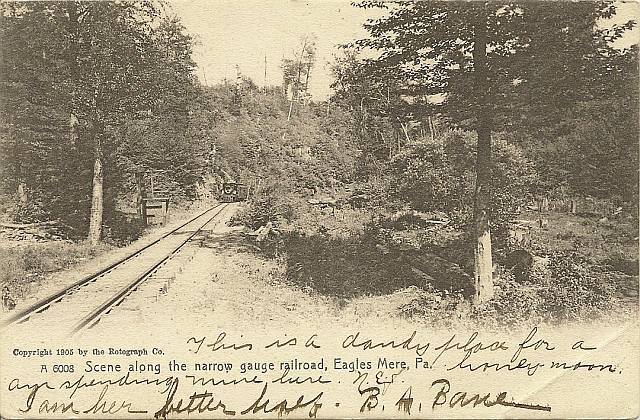 Copyright 1905 by the Rotograph Co.
This is a dandy place for a
A 6003 Scene along the narrow gauge railroad, Eagles Mere, Pa.
honey moon.
am spending mine here.
I am her better half. B. A. Bane